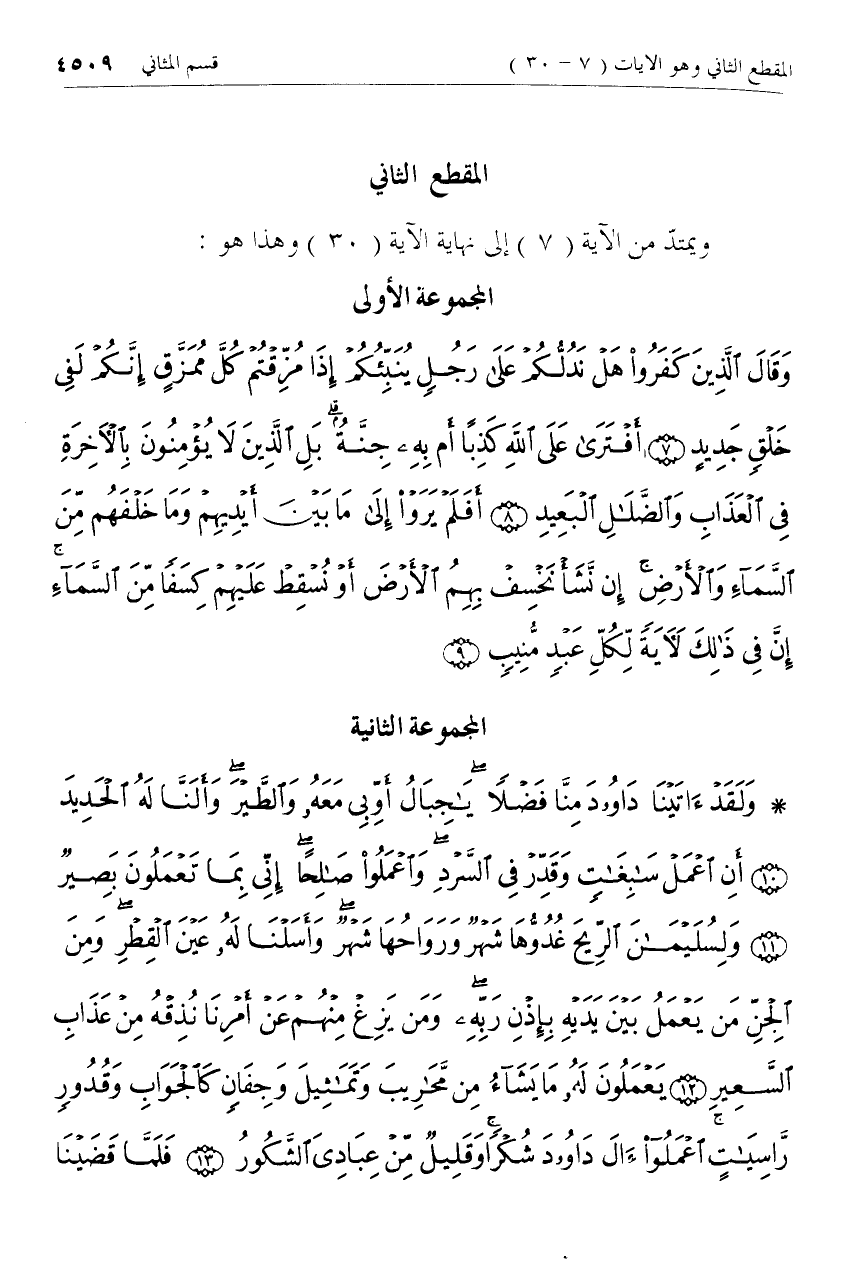 المقطع الثاني وهو الآيات ( ٧ – ٣٠ ) قسم المثاني ٤٥٠٩
المقطع الثاني
ويمتدّ من الآية ( ٧ ) إلى نهاية الآية ( ٣٠ ) وهذا هو :
المجموعة الأولى
وَقَالَ ٱلَّذِينَ كَفَرُوا۟ هَلْ نَدُلُّكُمْ عَلَىٰ رَجُلٍ يُنَبِّئُكُمْ إِذَا مُزِّقْتُمْ كُلَّ مُمَزَّقٍ إِنَّكُمْ لَفِى
خَلْقٍ جَدِيدٍ ﴿٧﴾ أَفْتَرَىٰ عَلَى ٱللَّهِ كَذِبًا أَم بِهِۦ جِنَّةٌۢ ۗ بَلِ ٱلَّذِينَ لَا يُؤْمِنُونَ بِٱلْآخِرَةِ
فِى ٱلْعَذَابِ وَٱلضَّلَـٰلِ ٱلْبَعِيدِ ﴿٨﴾ أَفَلَمْ يَرَوْا۟ إِلَىٰ مَا بَيْنَ أَيْدِيهِمْ وَمَا خَلْفَهُم مِّنَ
ٱلسَّمَآءِ وَٱلْأَرْضِ ۚ إِن نَّشَأْ نَخْسِفْ بِهِمُ ٱلْأَرْضَ أَوْ نُسْقِطْ عَلَيْهِمْ كِسَفًا مِّنَ ٱلسَّمَآءِ ۚ
إِنَّ فِى ذَٰلِكَ لَـَٔايَةً لِّكُلِّ عَبْدٍ مُّنِيبٍ ﴿٩﴾
المجموعة الثانية
* وَلَقَدْ ءَاتَيْنَا دَاوُۥدَ مِنَّا فَضْلًا ۖ يَـٰجِبَالُ أَوِّبِى مَعَهُۥ وَٱلطَّيْرَ ۖ وَأَلَنَّا لَهُ ٱلْحَدِيدَ
﴿١٠﴾ أَنِ ٱعْمَلْ سَـٰبِغَـٰتٍ وَقَدِّرْ فِى ٱلسَّرْدِ ۖ وَٱعْمَلُوا۟ صَـٰلِحًا ۖ إِنِّى بِمَا تَعْمَلُونَ بَصِيرٌ
﴿١١﴾ وَلِسُلَيْمَـٰنَ ٱلرِّيحَ غُدُوُّهَا شَهْرٌ وَرَوَاحُهَا شَهْرٌ ۖ وَأَسَلْنَا لَهُۥ عَيْنَ ٱلْقِطْرِ ۖ وَمِنَ
ٱلْجِنِّ مَن يَعْمَلُ بَيْنَ يَدَيْهِ بِإِذْنِ رَبِّهِۦ ۖ وَمَن يَزِغْ مِنْهُمْ عَنْ أَمْرِنَا نُذِقْهُ مِنْ عَذَابِ
ٱلسَّعِيرِ ﴿١٢﴾ يَعْمَلُونَ لَهُۥ مَا يَشَآءُ مِن مَّحَـٰرِيبَ وَتَمَـٰثِيلَ وَجِفَانٍ كَٱلْجَوَابِ وَقُدُورٍ
رَّاسِيَـٰتٍ ۚ ٱعْمَلُوٓا۟ ءَالَ دَاوُۥدَ شُكْرًا ۚ وَقَلِيلٌ مِّنْ عِبَادِىَ ٱلشَّكُورُ ﴿١٣﴾ فَلَمَّا قَضَيْنَا